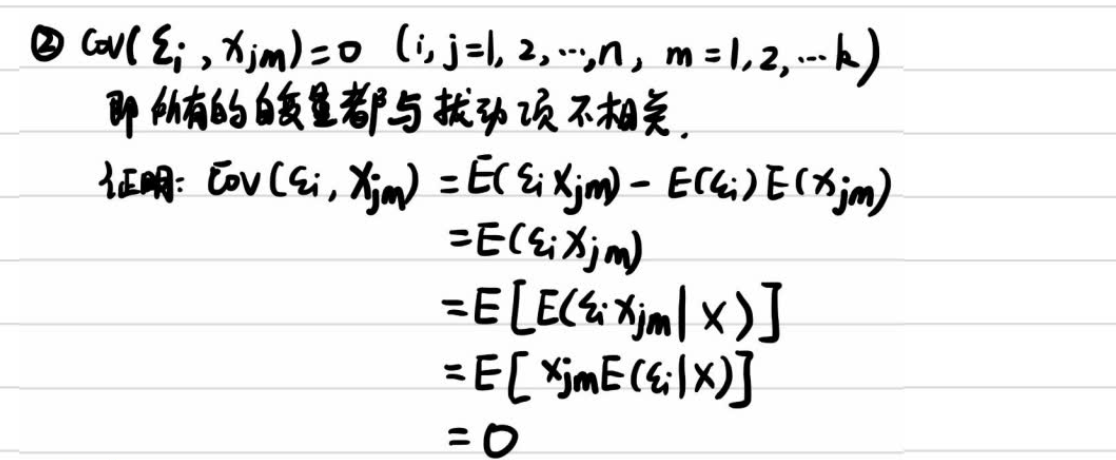 ② Cov(εi, xjm)=0 (i, j=1, 2, …, n, m=1, 2, … k)
即所有的自变量都与扰动项不相关.
证明: Cov(εi, xjm) = E(εi xjm) - E(εi)E(xjm)
= E(εi xjm)
= E[E(εi xjm | X)]
= E[xjm E(εi | X)]
= 0